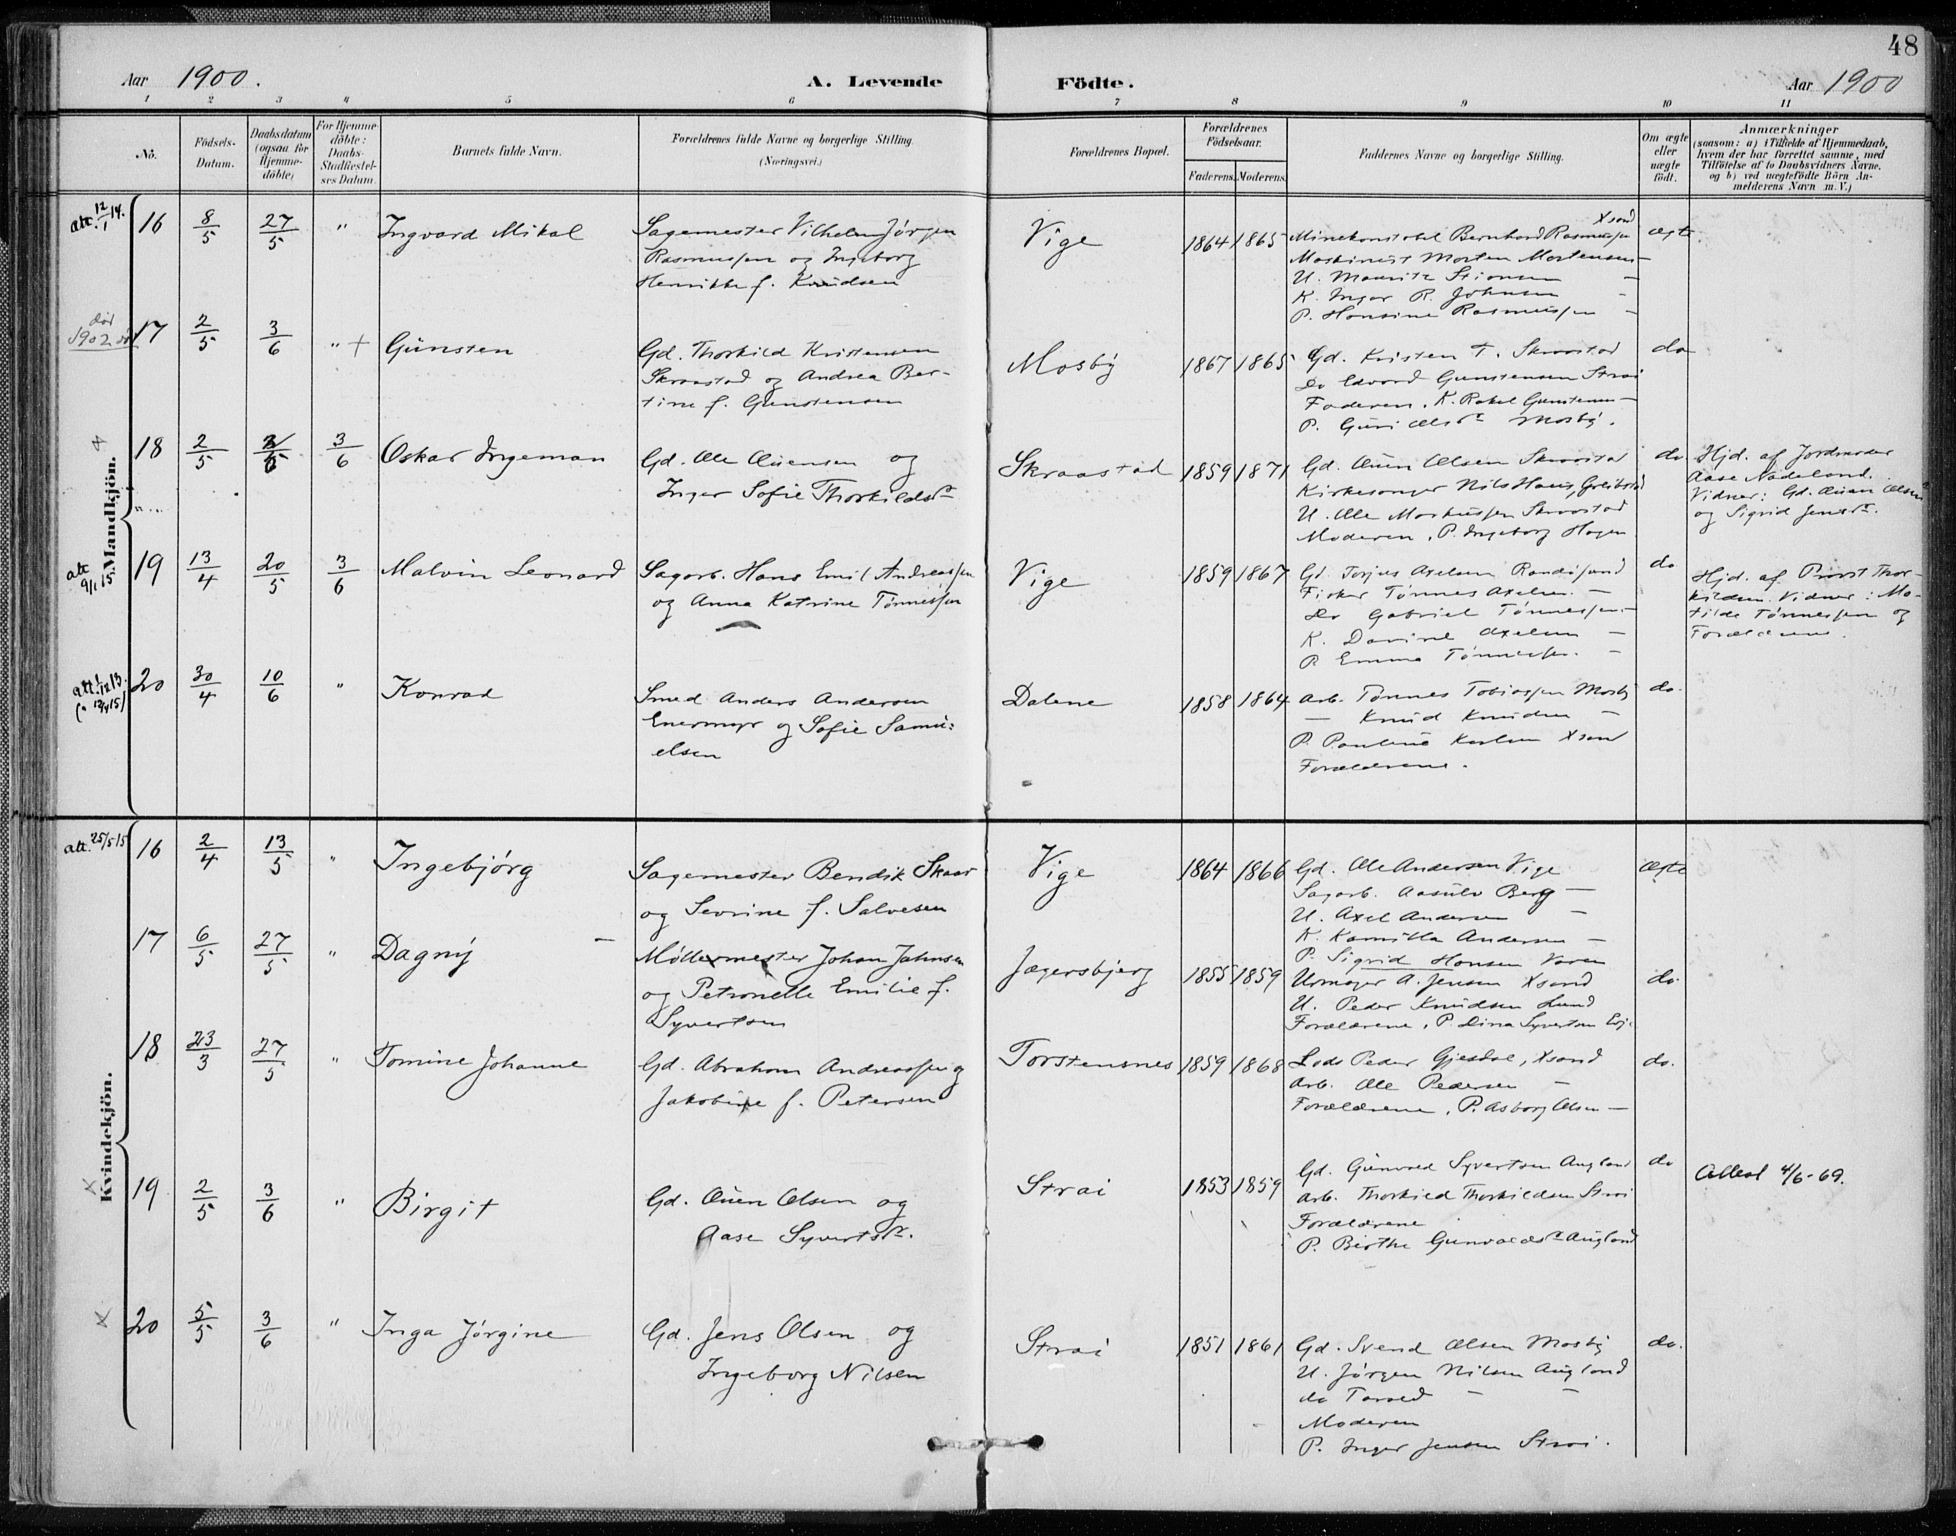 48
Aar 1900.
A. Levende Födte.
Aar 1900
1 2 3 4 5 6 7 8 9 10 11
No.
Födsels-Datum.
Daabsdatum (ogsaa for Hjemme-döbte)
For Hjemme-döbte: Daabs-Stadfæstel-ses Datum.
Barnets fulde Navn.
Forældrenes fulde Navne og borgerlige Stilling.
(Næringsvei.)
Forældrenes Bopæl.
Forældrenes Födselsaar.
Faderens. Moderens.
Faddernes Navne og borgerlige Stilling.
Om ægte eller uægte födt.
Anmærkninger
(saasom: a) i Tilfælde af Hjemmedaab,
hvem der har forrettet samme, med
Tilföielse af to Daabsvidners Navne.
og b) ved uægtefödte Börn An-
melderens Navn m. V.)
Mandkjön.
att. 12/1 14.
16 8/5 27/5 " Ingvard Mikal
Sagemester Vilhelm Jørgen
Rasmussen og Ingeborg
Henrikke f. Knudsen
Vige 1864 1865
Xsand
Minekonstabel Bernhard Rasmussen
Maskinist Morten Mortensen —
U. Mauritz
K. Inger R. Johnsen —
P. Hansine Rasmussen —
ægte
død
1902
17 2/5 3/6 " + Günsten
Gd. Thorkild Kristensen
Skraastad og Andrea Ber-
tine f. Gunstensen
Mosby 1867 1865
Gd. Kristen T. Skraastad
Do Edvard Gunstensen Strai
Faderen, K. Rakel Gunstensen —
P. Guri Olsdr Mosby.
do
18 2/5 3/6 3/6 Oskar Ingeman
Gd. Ole Ouensen og
Inger Sofie Thorkildsdr
Skraastad 1859 1871
Gd. Ouen Olsen Skraastad
Kirkesanger Nils Haus, Greibstad
U. Ole Markussen Skraastad
Moderen, P. Ingeborg Hagen
do
Hjd. af Jordmoder
Aase Nødeland.
Vidner: Gd. Ouen Olsen
og Sigrid Jensdr.
att 9/1 15.
19 13/4 20/5 3/6 Malvin Leonard
Sagarb. Hans Emil Andreassen
og Anna Katrine Tønnessen
Vige 1859 1867
Gd. Torjus Axelsen Randøsund
Fisker Tønnes Axelsen. —
Do Gabriel Tønnessen —
K. Davine Axelsen —
P. Emma Tønnessen. —
do
Hjd. af Provst Thor-
kildsen. Vidner: Ma-
tilde Tønnessen og
Forældrene.
20 30/4 10/6 " Konrad
Smed Anders Andersen
Enermyr og Sofie Samu-
elsen
Dalene 1858 1864
Arb. Tønnes Tobiassen Mosby
— Knud Knudsen —
P. Pauline Xsand
Forældrene.
do.
Kvindekjön.
att. 25/5 15
16 2/4 13/5 " Ingebjørg
Sagemester Bendik Skaar
og Sevrine f. Salvesen
Vige 1864 1866
Gd. Ole Andersen Vige
Sagarb. Aasulv Berg —
U. Axel Andersen —
K. Kamilla Andersen —
P. Sigrid Hansen
ægte
17 6/5 27/5 " Dagny —
Møllermester Johan Jahnsen
og Petronelle Emilie f.
Syvertsen
Jægersbjerg 1855 1859
Urmager A. Jensen Xsand
U. Peder Knudsen Lund
Forældrene, P. Dina Syvertsen
do.
18 23/3 27/5 " Tomine Johanne
Gd. Abraham Andreassen og
Jakobine f. Petersen
Torstensnes 1859 1868
Lods Peder Gjesdal, Xsand
Arb. Ole Pedersen —
Forældrene, P. Asborg Olsen —
do.
19 2/5 3/6 " Birgit
Gd. Ouen Olsen og
Aase Syvertsdr.
Strai 1853 1859
Gd. Gunvald Syvertsen Augland
Arb. Thorkild Thorkildsen Strai
Forældrene
P. Birthe Gunvaldsdr Augland
do
Attest 4/6-69.
20 5/5 3/6 " Inga Jørgine
Gd. Jens Olsen og
Ingeborg Nilsen
Strai 1851 1861
Gd. Svend Olsen Mosby
U. Jørgen Nilsen Augland
do Tarald — —
Moderen
P. Inger Jensen Strai.
do.